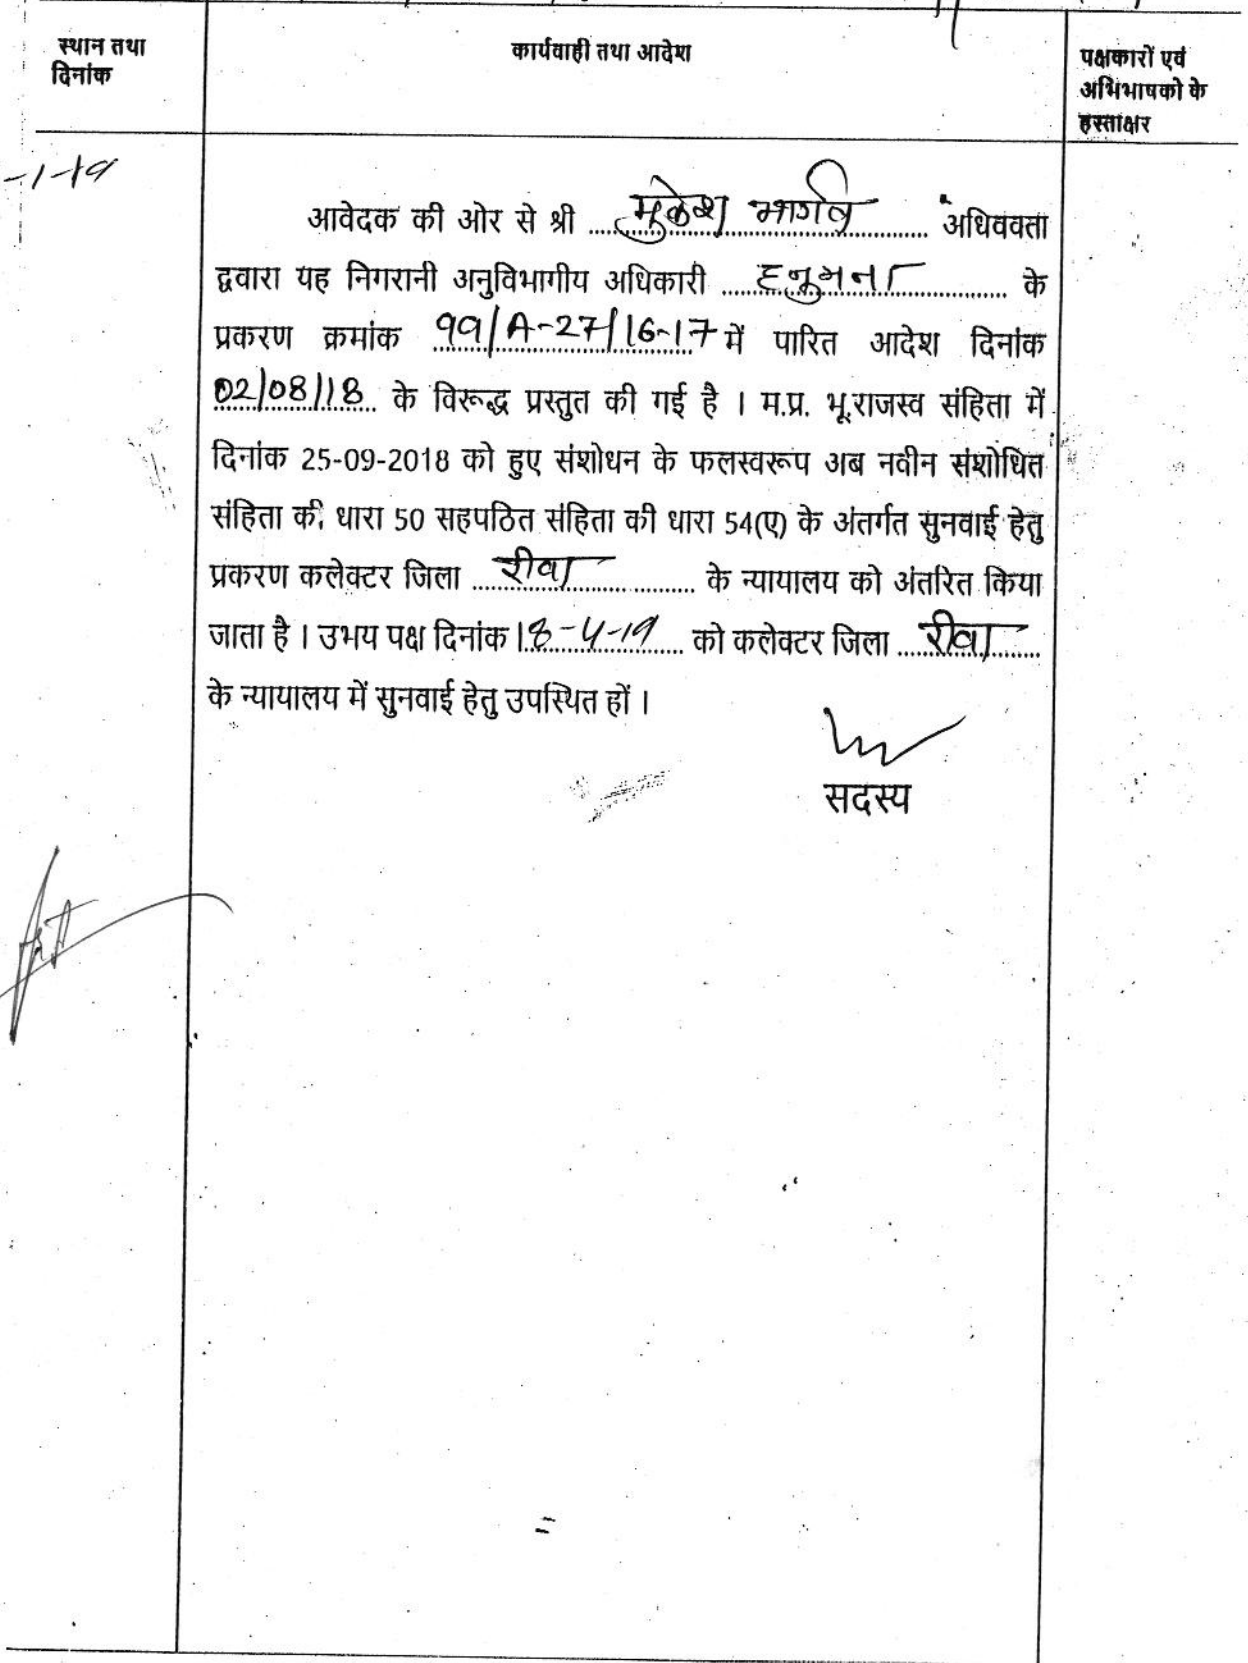 स्थान तथा
दिनांक
कार्यवाही तथा आदेश
पक्षकारों एवं
अभिभाषको के
हस्ताक्षर
-1-19
आवेदक की ओर से श्री मुकेश भार्गव अधिववता
द्ववारा यह निगरानी अनुविभागीय अधिकारी हनुमना के
प्रकरण क्रमांक 99/A-27/16-17 में पारित आदेश दिनांक
02/08/18 के विरूद्ध प्रस्तुत की गई है । म.प्र. भू.राजस्व संहिता में
दिनांक 25-09-2018 को हुए संशोधन के फलस्वरूप अब नवीन संशोधित
संहिता की धारा 50 सहपठित संहिता की धारा 54(ए) के अंतर्गत सुनवाई हेतु
प्रकरण कलेक्टर जिला रीवा के न्यायालय को अंतरित किया
जाता है । उभय पक्ष दिनांक 18-4-19 को कलेक्टर जिला रीवा
के न्यायालय में सुनवाई हेतु उपस्थित हों ।
सदस्य